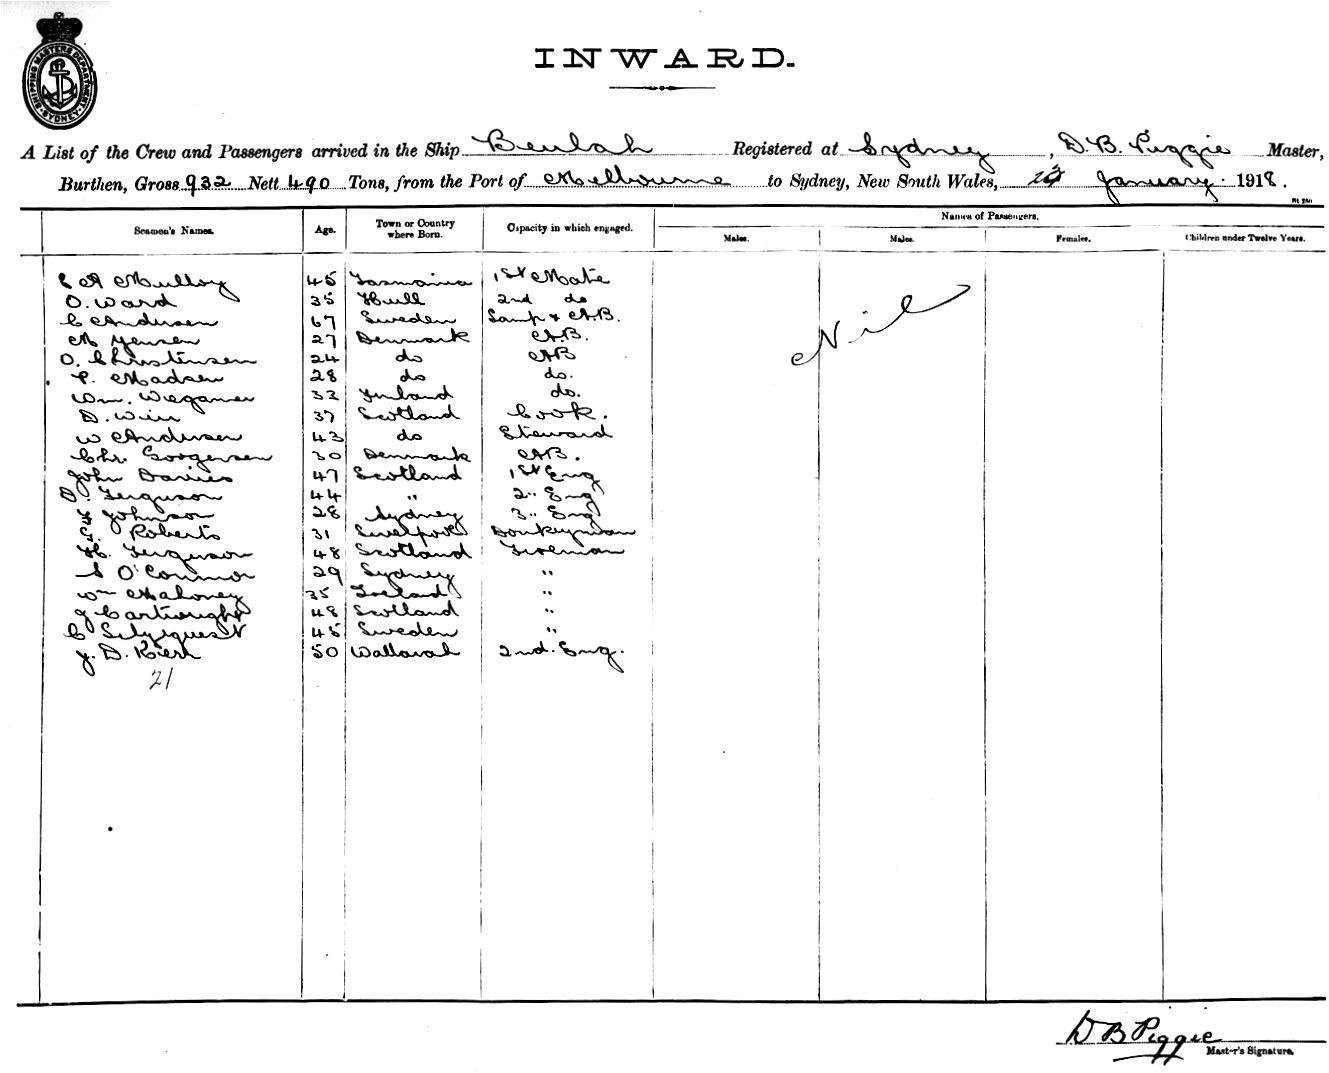 SHIPPING MASTERS DEPARTMENT SYDNEY
INWARD.
A List of the Crew and Passengers arrived in the Ship Beulah Registered at Sydney, D. B. Piggie Master,
Burthen, Gross 932 Nett 490 Tons, from the Port of Melbourne to Sydney, New South Wales, January 1918.
Names of Passengers.
Seamen's Names. Age. Town or Country where Born. Capacity in which engaged. Males. Males. Females. Children under Twelve Years.
A Mulloy 45 Tasmania 1st Mate
O. Ward 35 Hull 2nd do
C Andersen 67 Sweden Lamp & A.B.
M Jensen 27 Denmark A.B.
O. Christensen 24 do AB
P. Madsen 28 do do.
Wm. Wegamer 33 Finland do.
D. Weir 37 Scotland Cook.
W Andersen 43 do Steward
Chr. Goorgensen 30 Denmark A.B.
John Davies 47 Scotland 1st Eng
D. Ferguson 44 " 2" Eng
Johnson 28 Sydney 3" Eng
G. Roberts 31 Liverpool Donkeyman
H. Ferguson 48 Scotland Fireman
S O'Connor 29 Sydney "
Wm Mahoney 35 Ireland "
J Cartwright 48 Scotland "
C 45 Sweden "
J. D. Kier 50 Wallarah 2nd. Eng.
21
Nil
D B Piggie
Master's Signature.